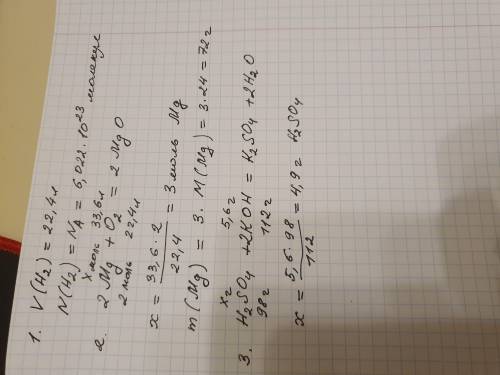 1. V(H₂) = 22,4 л
N(H₂) = N_A = 6,022·10²³ молекул
x моль 33,6 л
2. 2 Mg + O₂ = 2 MgO
2 моль 22,4 л
x = 33,6·2 / 22,4 = 3 моль Mg
m(Mg) = 3·M(Mg) = 3·24 = 72 г
x г 5,6 г
3. H₂SO₄ + 2KOH = K₂SO₄ + 2H₂O
98 г 112 г
x = 5,6·98 / 112 = 4,9 г H₂SO₄